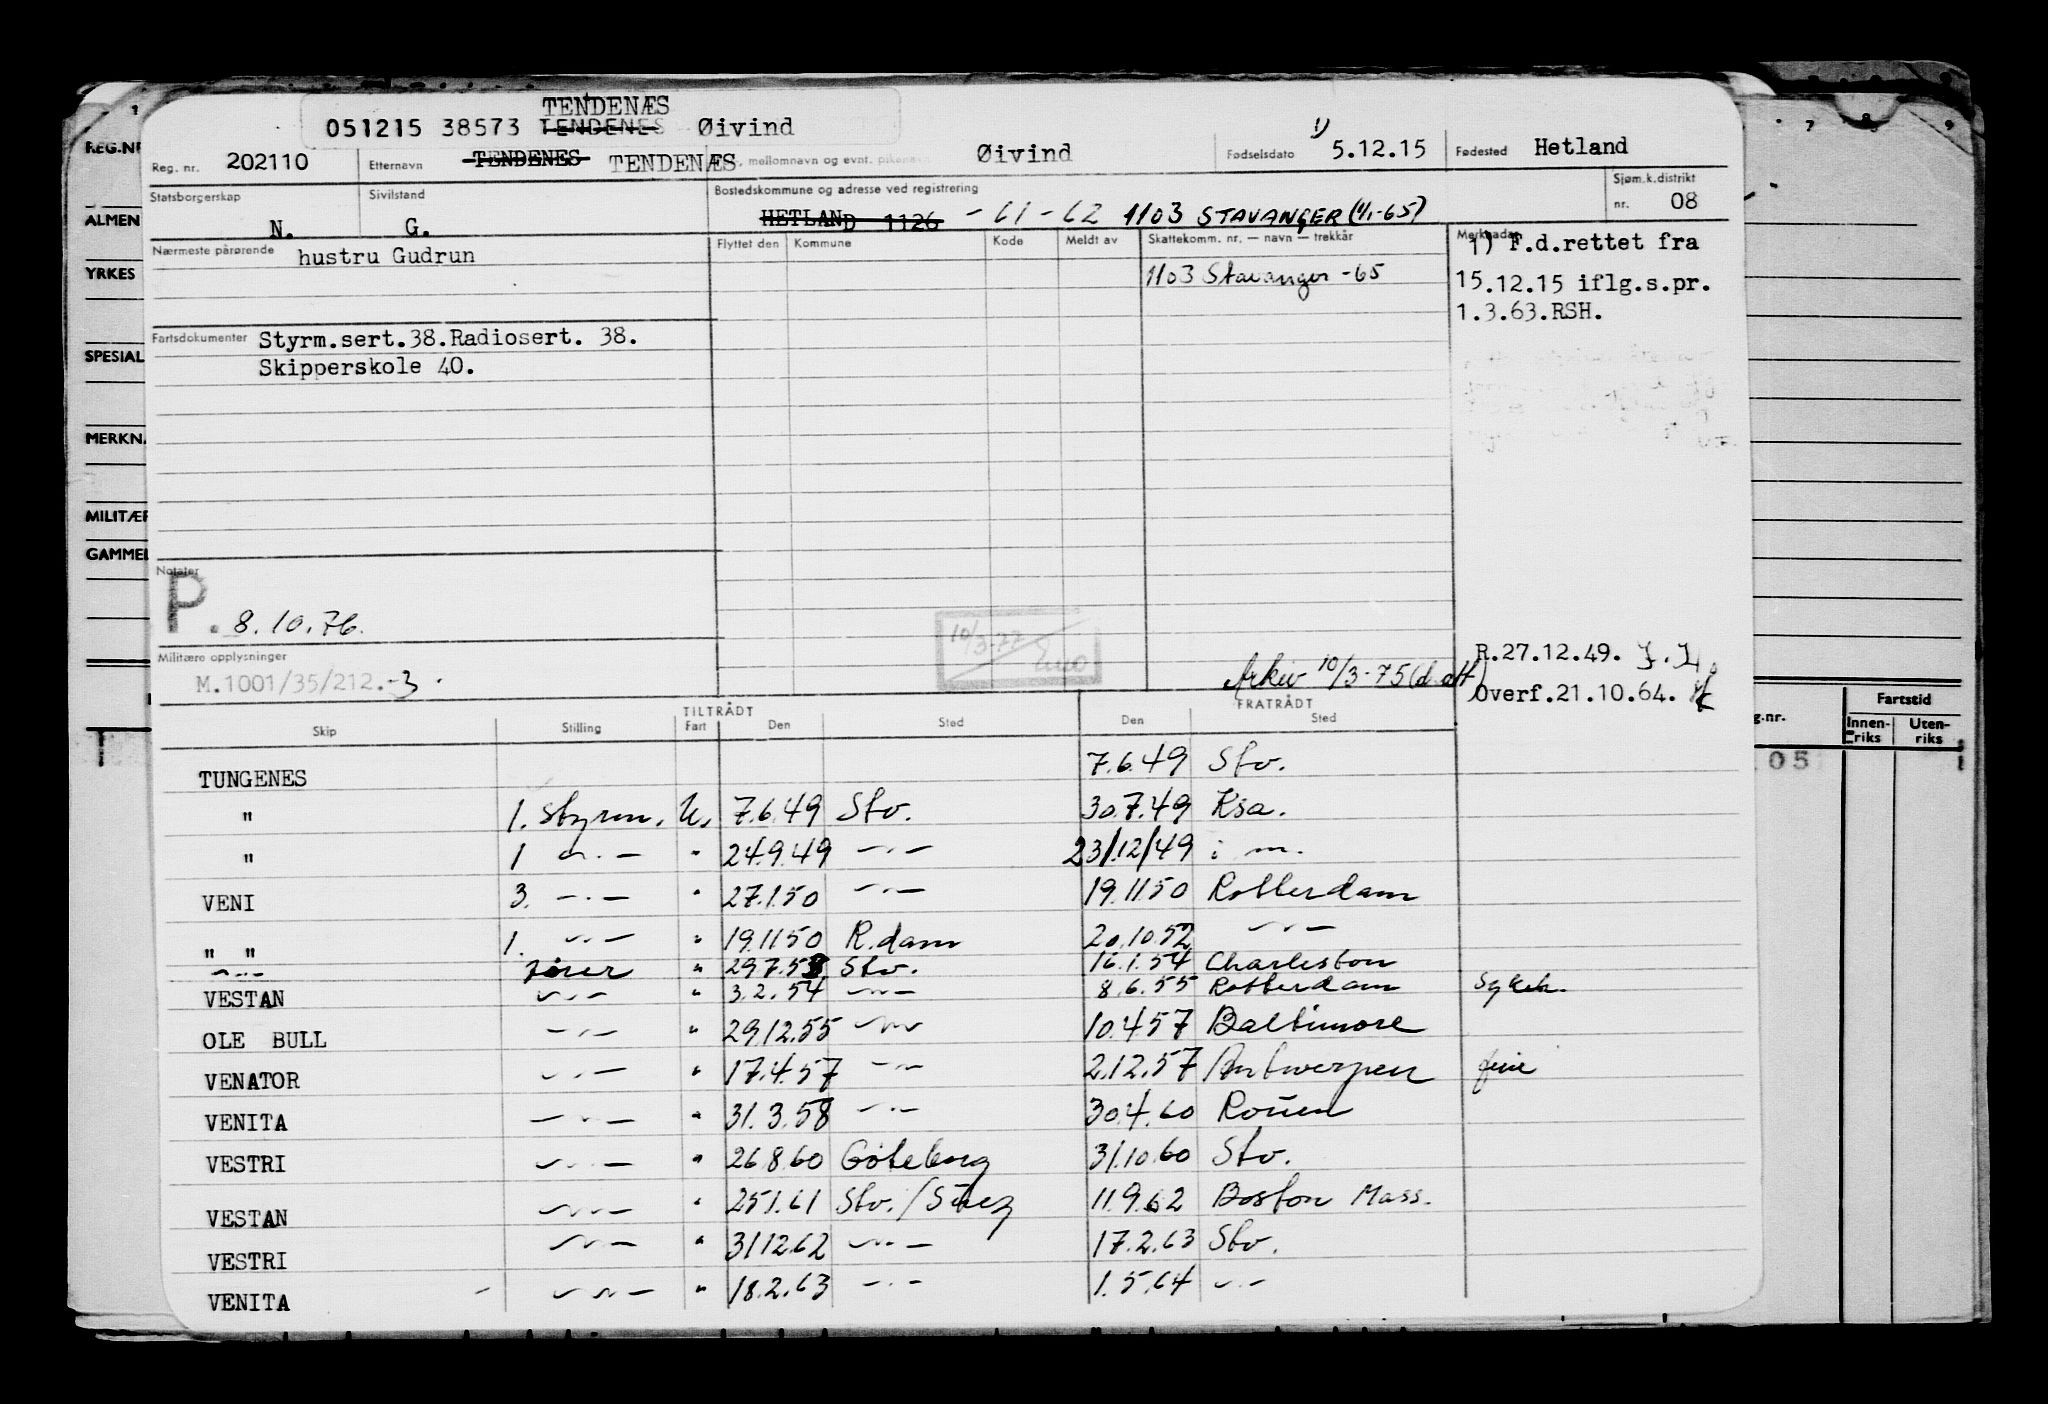 TENDENÆS
051215 38573 TENDENES Øivind
Reg. nr. 202110 Etternavn TENDENES TENDENÆS mellomnavn og evnt. pikenavn Øivind Fødselsdato 1) 5.12.15 Fødested Hetland
Statsborgerskap N. Sivilstand G. Bostedskommune og adresse ved registrering HETLAND 1126 -61-62 1103 STAVANGER (1/1-65) Sjøm.k.distrikt nr. 08
Nærmeste pårørende hustru Gudrun Flyttet den Kommune Kode Meldt av Skattekomm. nr. — navn — trekkår Merknader 1) F.d.rettet fra
1103 Stavanger -65 15.12.15 iflg.s.pr.
1.3.63.RSH.
Fartsdokumenter Styrm.sert.38.Radiosert. 38.
Skipperskole 40.
Notater
P. 8.10.76.
10/3-77
Militære opplysninger
M.1001/35/212.-3.
Arkiv 10/3-75 (d.att)
R.27.12.49.
Overf.21.10.64.
TILTRÅDT FRATRÅDT
Skip Stilling Fart Den Sted Den Sted
TUNGENES 7.6.49 Stv.
" 1. styrm. U. 7.6.49 Stv. 30.7.49 Ksa.
" 1 —·— " 24.9.49 —·— 23/12/49 i m.
VENI 3. —·— " 27.1.50 —·— 19.11.50 Rotterdam
" " 1. —·— " 19.11.50 R.dam 20.10.52 —·—
—·— fører " 29.7.53 Stv. 16.1.54 Charleston
VESTAN —·— " 3.2.54 —·— 8.6.55 Rotterdam Sykeh.
OLE BULL —·— " 29.12.55 —·— 10.4.57 Baltimore
VENATOR —·— " 17.4.57 —·— 2.12.57 Antwerpen ferie
VENITA —·— " 31.3.58 —·— 30.4.60 Rouen
VESTRI —·— " 26.8.60 Göteborg 31.10.60 Stv.
VESTAN —·— " 25.1.61 Stv./Suez 11.9.62 Boston Mass.
VESTRI —·— " 31.12.62 —·— 17.2.63 Stv.
VENITA —·— " 18.2.63 —·— 1.5.64 —·—
REG.NR
ALMEN
YRKES
SPESIAL
MERKN
MILITÆR
GAMMEL
7 8 9
g.nr.
Fartstid
Innenriks Utenriks
05